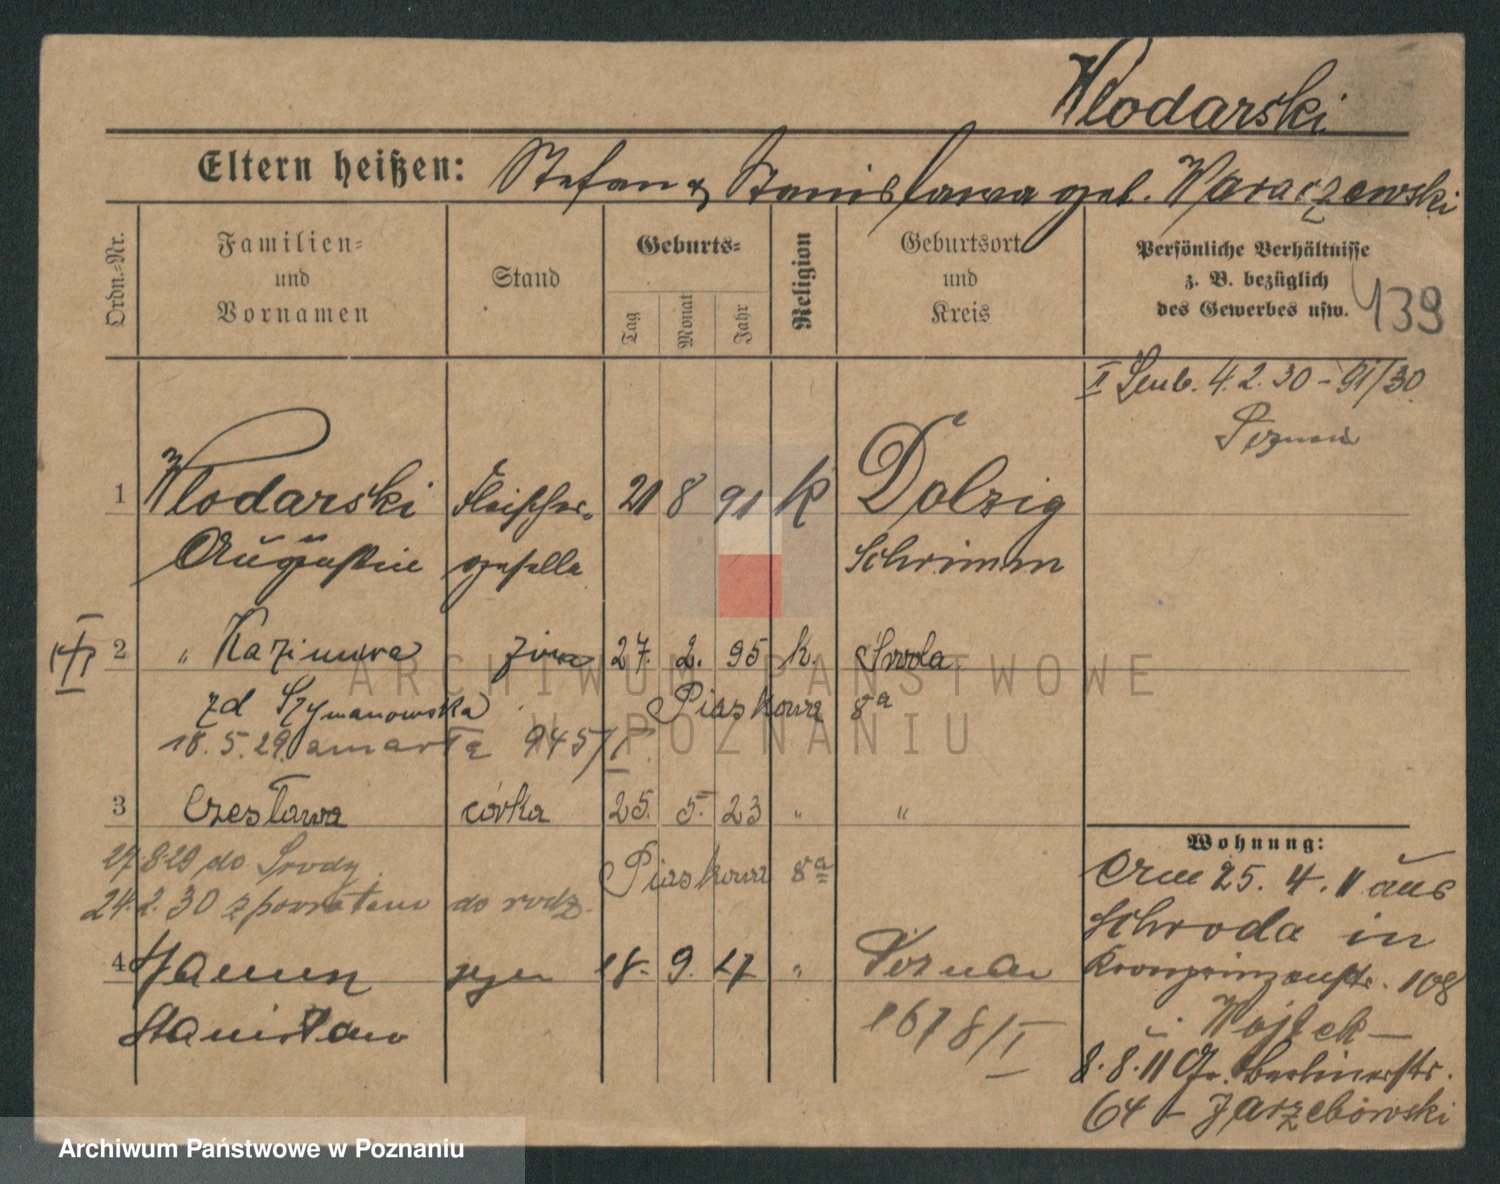 Wlodarski
Eltern heißen: Stefan & Stanislawa geb. Waraczewski
Ordn.-Nr.
Familien-
und
Vornamen
Stand
Geburts-
Tag
Monat
Jahr
Religion
Geburtsort
und
Kreis
Persönliche Verhältnisse
z. B. bezüglich
des Gewerbes usw.
139
4.2.30 - 91/30
Poznań
1 Wlodarski Fleischer- 21 8 91 K Dolzig
Augustin geselle Schrimm
2 " Kazimiera żona 27. 2. 95 k. Środa
zd Szymanowska Piaskowa 8a
18.5.29 zmarła 945/I
3 Czesława córka 25. 5. 23 " "
27.8.29 do Środy Piaskowa 8a
24.2.30 z powrotem do rodz.
4 syn 18. 9. 27 " Poznań
Stanisław 1678/I
Wohnung:
Am 25. 4. 11 aus
Schroda in
Kronprinzenstr. 108
b. Wojtek -
8.8.11 Gr. Berlinerstr.
64 - Jarzebowski
ARCHIWUM PAŃSTWOWE
W POZNANIU
Archiwum Państwowe w Poznaniu